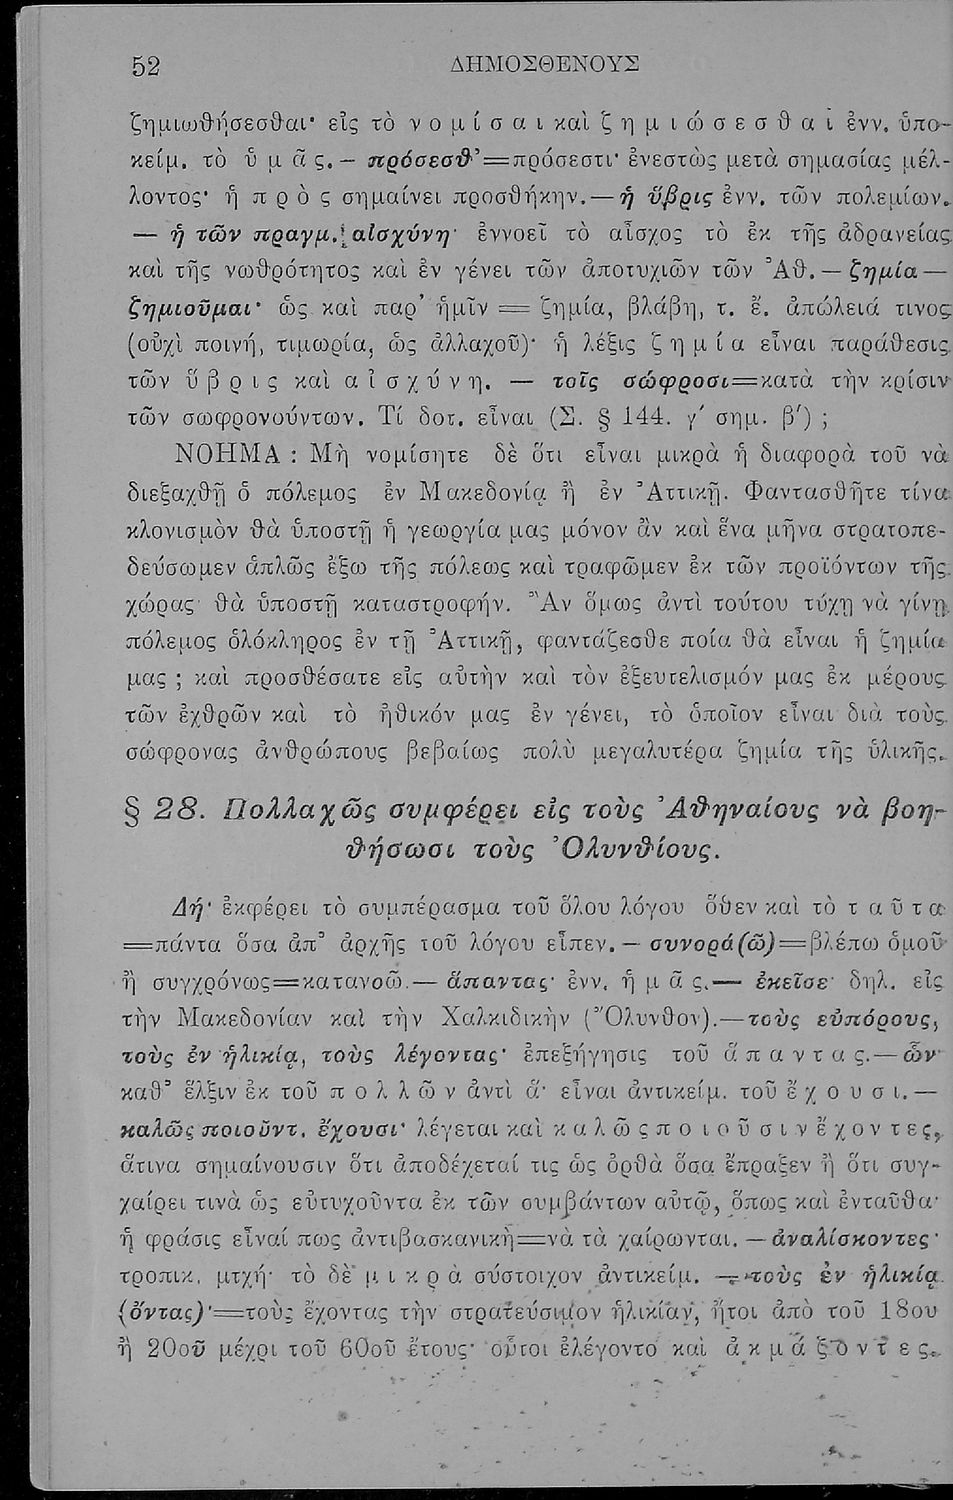 52 ΔΗΜΟΣΘΕΝΟΥΣ
ζημιωθήσεσθαι· εἰς τὸ ν ο μ ί σ α ι καὶ ζ η μ ι ώ σ ε σ θ α ι ἐνν. ὑπο-
κείμ. τὸ ὑ μ ᾶ ς. — πρόσεσθ’ = πρόσεστι· ἐνεστὼς μετὰ σημασίας μέλ-
λοντος· ἡ π ρ ὸ ς σημαίνει προσθήκην. — ἡ ὕβρις ἐνν. τῶν πολεμίων.
— ἡ τῶν πραγμ. αἰσχύνη· ἐννοεῖ τὸ αἶσχος τὸ ἐκ τῆς ἀδρανείας
καὶ τῆς νωθρότητος καὶ ἐν γένει τῶν ἀποτυχιῶν τῶν Ἀθ. — ζημία —
ζημιοῦμαι· ὡς καὶ παρ’ ἡμῖν = ζημία, βλάβη, τ. ἔ. ἀπώλειά τινος
(οὐχὶ ποινή, τιμωρία, ὡς ἀλλαχοῦ)· ἡ λέξις ζ η μ ί α εἶναι παράθεσις
τῶν ὕ β ρ ι ς καὶ α ἰ σ χ ύ ν η. — τοῖς σώφροσι = κατὰ τὴν κρίσιν
τῶν σωφρονούντων. Τί δοτ. εἶναι (Σ. § 144. γ′ σημ. β′) ;
ΝΟΗΜΑ : Μὴ νομίσητε δὲ ὅτι εἶναι μικρὰ ἡ διαφορὰ τοῦ νὰ
διεξαχθῇ ὁ πόλεμος ἐν Μακεδονίᾳ ἢ ἐν Ἀττικῇ. Φαντασθῆτε τίνα
κλονισμὸν θὰ ὑποστῇ ἡ γεωργία μας μόνον ἂν καὶ ἕνα μῆνα στρατοπε-
δεύσωμεν ἁπλῶς ἔξω τῆς πόλεως καὶ τραφῶμεν ἐκ τῶν προϊόντων τῆς
χώρας· θὰ ὑποστῇ καταστροφήν. Ἂν ὅμως ἀντὶ τούτου τύχῃ νὰ γίνῃ
πόλεμος ὁλόκληρος ἐν τῇ Ἀττικῇ, φαντάζεσθε ποία θὰ εἶναι ἡ ζημία
μας ; καὶ προσθέσατε εἰς αὐτὴν καὶ τὸν ἐξευτελισμόν μας ἐκ μέρους
τῶν ἐχθρῶν καὶ τὸ ἠθικόν μας ἐν γένει, τὸ ὁποῖον εἶναι διὰ τοὺς
σώφρονας ἀνθρώπους βεβαίως πολὺ μεγαλυτέρα ζημία τῆς ὑλικῆς.
§ 28. Πολλαχῶς συμφέρει εἰς τοὺς Ἀθηναίους νὰ βοη-
θήσωσι τοὺς Ὀλυνθίους.
Δή· ἐκφέρει τὸ συμπέρασμα τοῦ ὅλου λόγου ὅθεν καὶ τὸ τ α ῦ τ α
= πάντα ὅσα ἀπ’ ἀρχῆς τοῦ λόγου εἶπεν. — συνορά(ῶ) = βλέπω ὁμοῦ
ἢ συγχρόνως = κατανοῶ. — ἅπαντας· ἐνν. ἡ μ ᾶ ς. — ἐκεῖσε· δηλ. εἰς
τὴν Μακεδονίαν καὶ τὴν Χαλκιδικὴν (Ὄλυνθον). — τοὺς εὐπόρους,
τοὺς ἐν ἡλικίᾳ, τοὺς λέγοντας· ἐπεξήγησις τοῦ ἅ π α ν τ α ς. — ὧν
καθ’ ἕλξιν ἐκ τοῦ π ο λ λ ῶ ν ἀντὶ ἅ· εἶναι ἀντικείμ. τοῦ ἔ χ ο υ σ ι. —
καλῶς ποιοῦντ. ἔχουσι· λέγεται καὶ κ α λ ῶ ς π ο ι ο ῦ σ ι ν ἔ χ ο ν τ ε ς,
ἅτινα σημαίνουσιν ὅτι ἀποδέχεταί τις ὡς ὀρθὰ ὅσα ἔπραξεν ἢ ὅτι συγ-
χαίρει τινὰ ὡς εὐτυχοῦντα ἐκ τῶν συμβάντων αὐτῷ, ὅπως καὶ ἐνταῦθα·
ἡ φράσις εἶναί πως ἀντιβασκανικὴ = νὰ τὰ χαίρωνται. — ἀναλίσκοντες·
τροπικ. μτχή· τὸ δὲ μ ι κ ρ ὰ σύστοιχον ἀντικείμ. — τοὺς ἐν ἡλικίᾳ
(ὄντας)· = τοὺς ἔχοντας τὴν στρατεύσιμον ἡλικίαν, ἤτοι ἀπὸ τοῦ 18ου
ἢ 20οῦ μέχρι τοῦ 60οῦ ἔτους· οὗτοι ἐλέγοντο καὶ ἀ κ μ ά ζ ο ν τ ε ς.